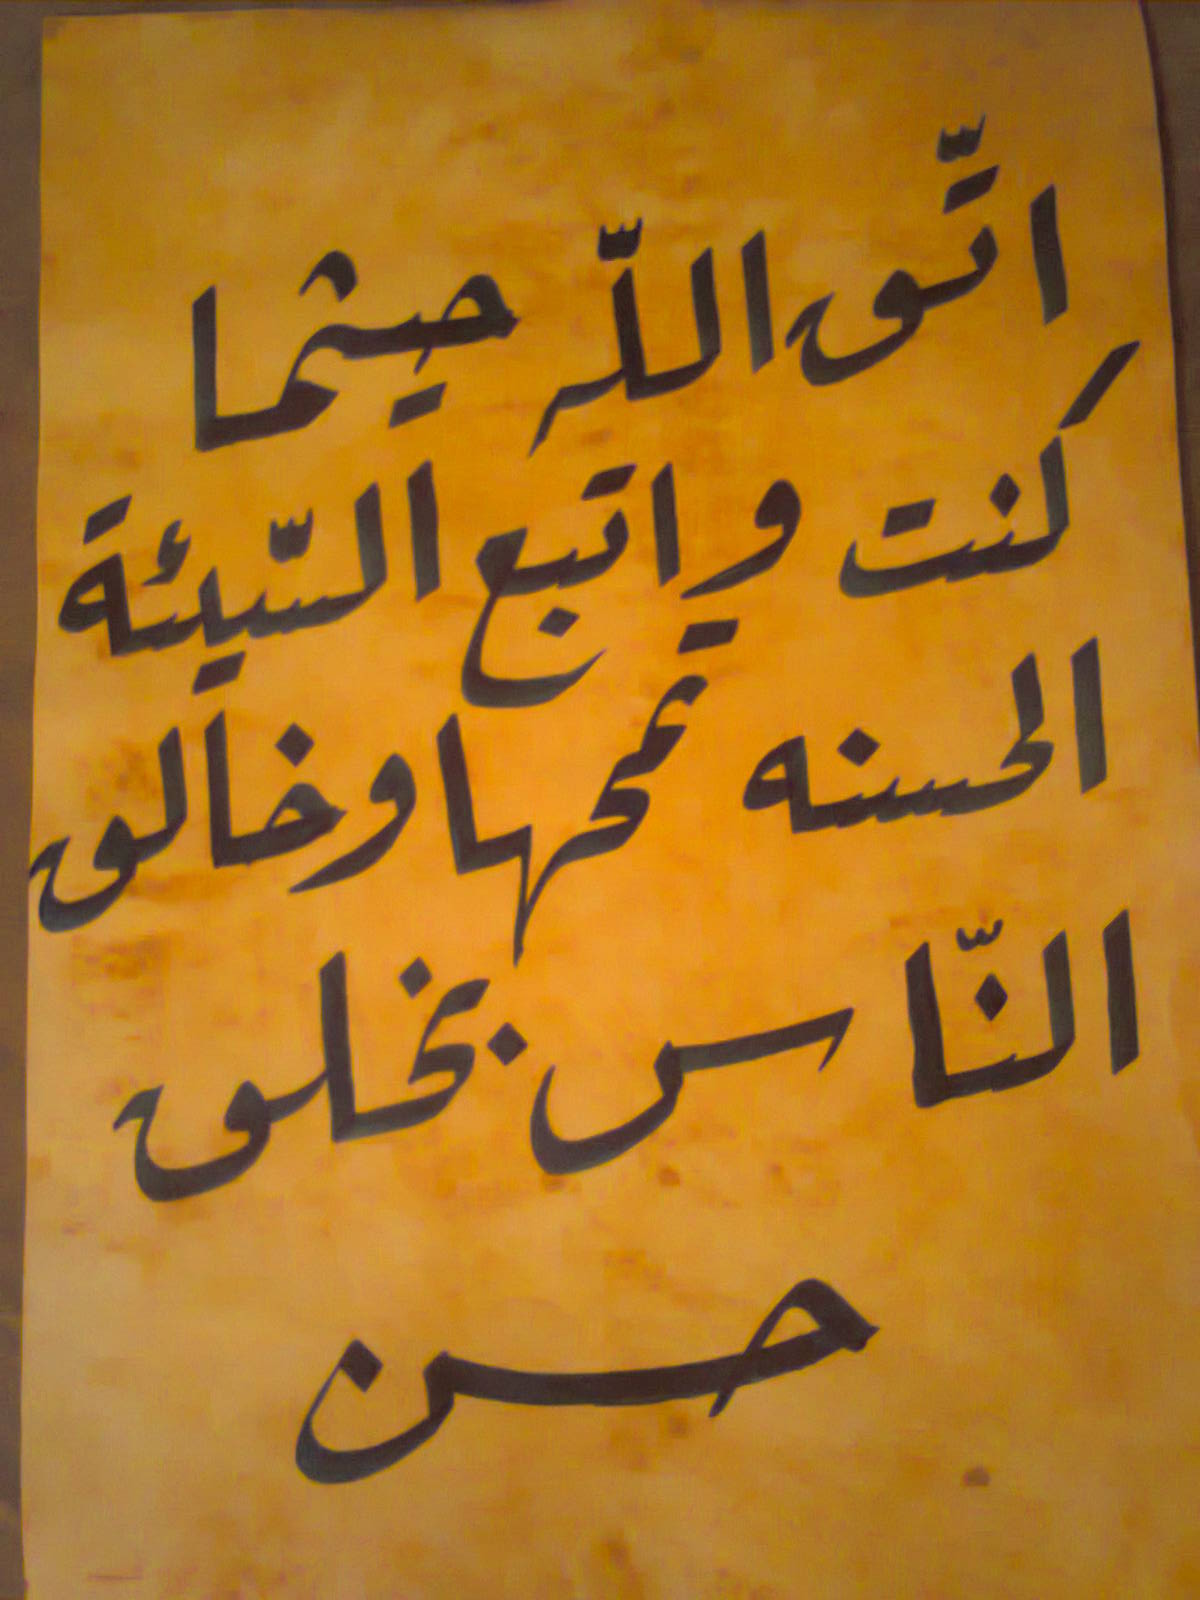 اتّق اللّه حيثما
كنت واتبع السّيئة
الحسنه تمحها وخالق
النّاس بخلق
حسن